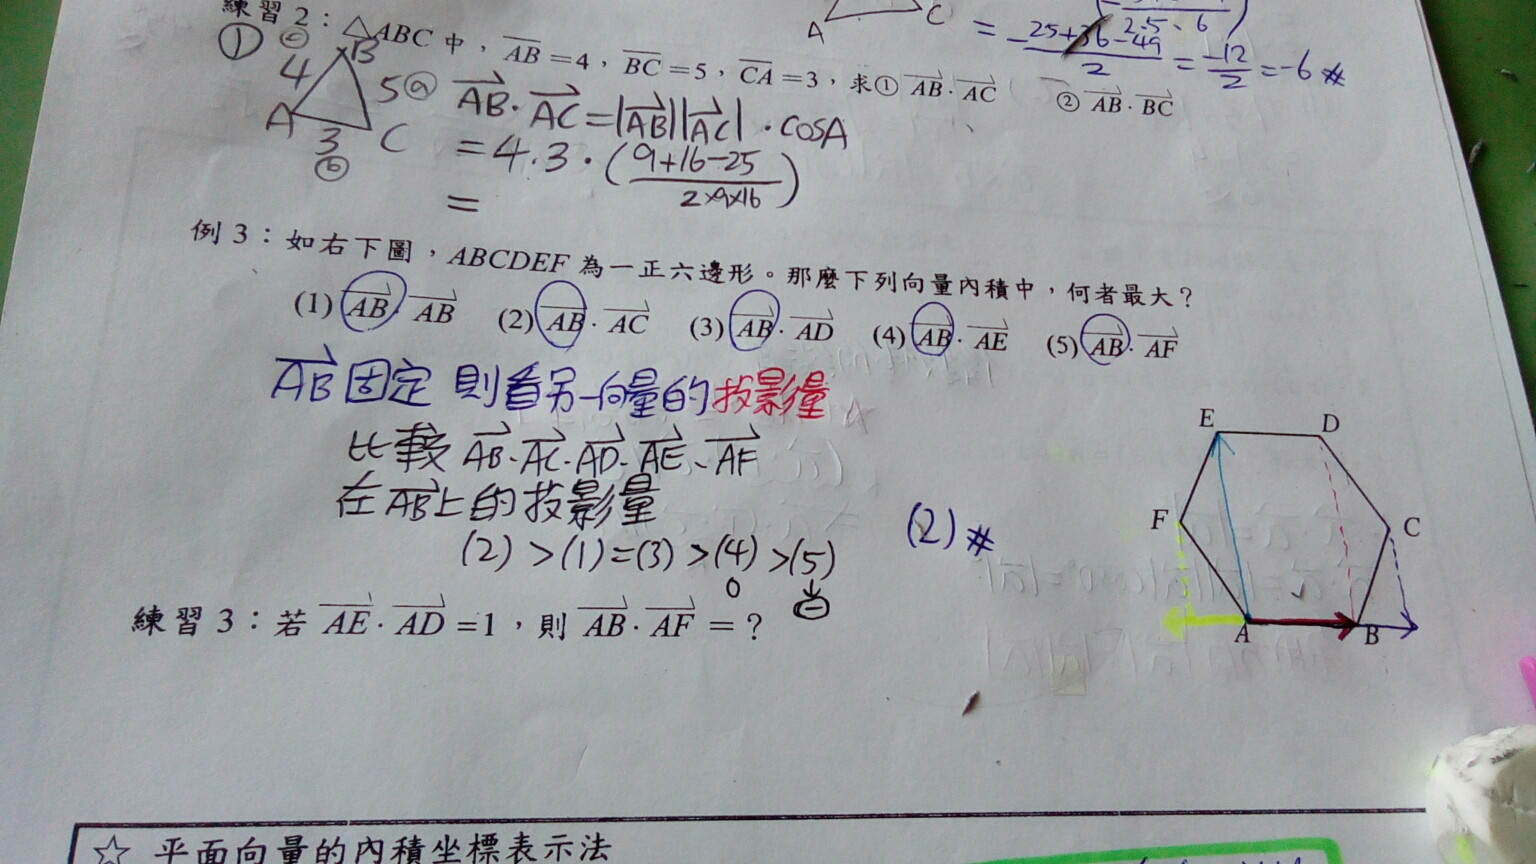 練習 2：△ABC 中，AB=4，BC=5，CA=3，求① AB·AC ② AB·BC
A C
= -25+36-49/2 = -12/2 = -6 #
① ⓒ 4 B 5 ⓐ A 3 ⓑ C
AB·AC=|AB||AC|·cosA
=4.3·(9+16-25/2×9×16)
=
例 3：如右下圖，ABCDEF 為一正六邊形。那麼下列向量內積中，何者最大？
(1) AB·AB (2) AB·AC (3) AB·AD (4) AB·AE (5) AB·AF
AB 固定 則看另一向量的投影量
比較 AB、AC、AD、AE、AF
在AB上的投影量
(2)>(1)=(3)>(4)>(5)
0 ↓ ⊖
(2)#
E D
F C
A B
練習 3：若 AE·AD=1，則 AB·AF=？
☆ 平面向量的內積坐標表示法